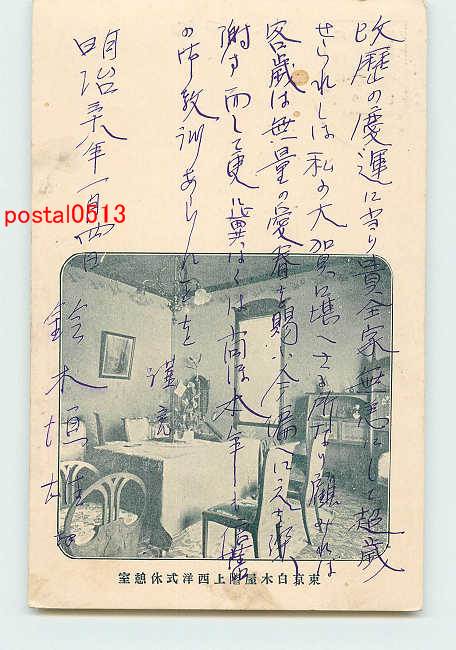 改歴の慶運に当り貴全家無恙として超歳
せられしは私の大賀に堪へざる所なり顧みれば
客歳は無量の愛眷を賜ふ今
謝す而して更に冀はくは尚ほ本年も
の御教訓あられんことを
謹言
明治三十八年一月四日
鈴木
東京白木屋階上西洋式休憩室
postal0513